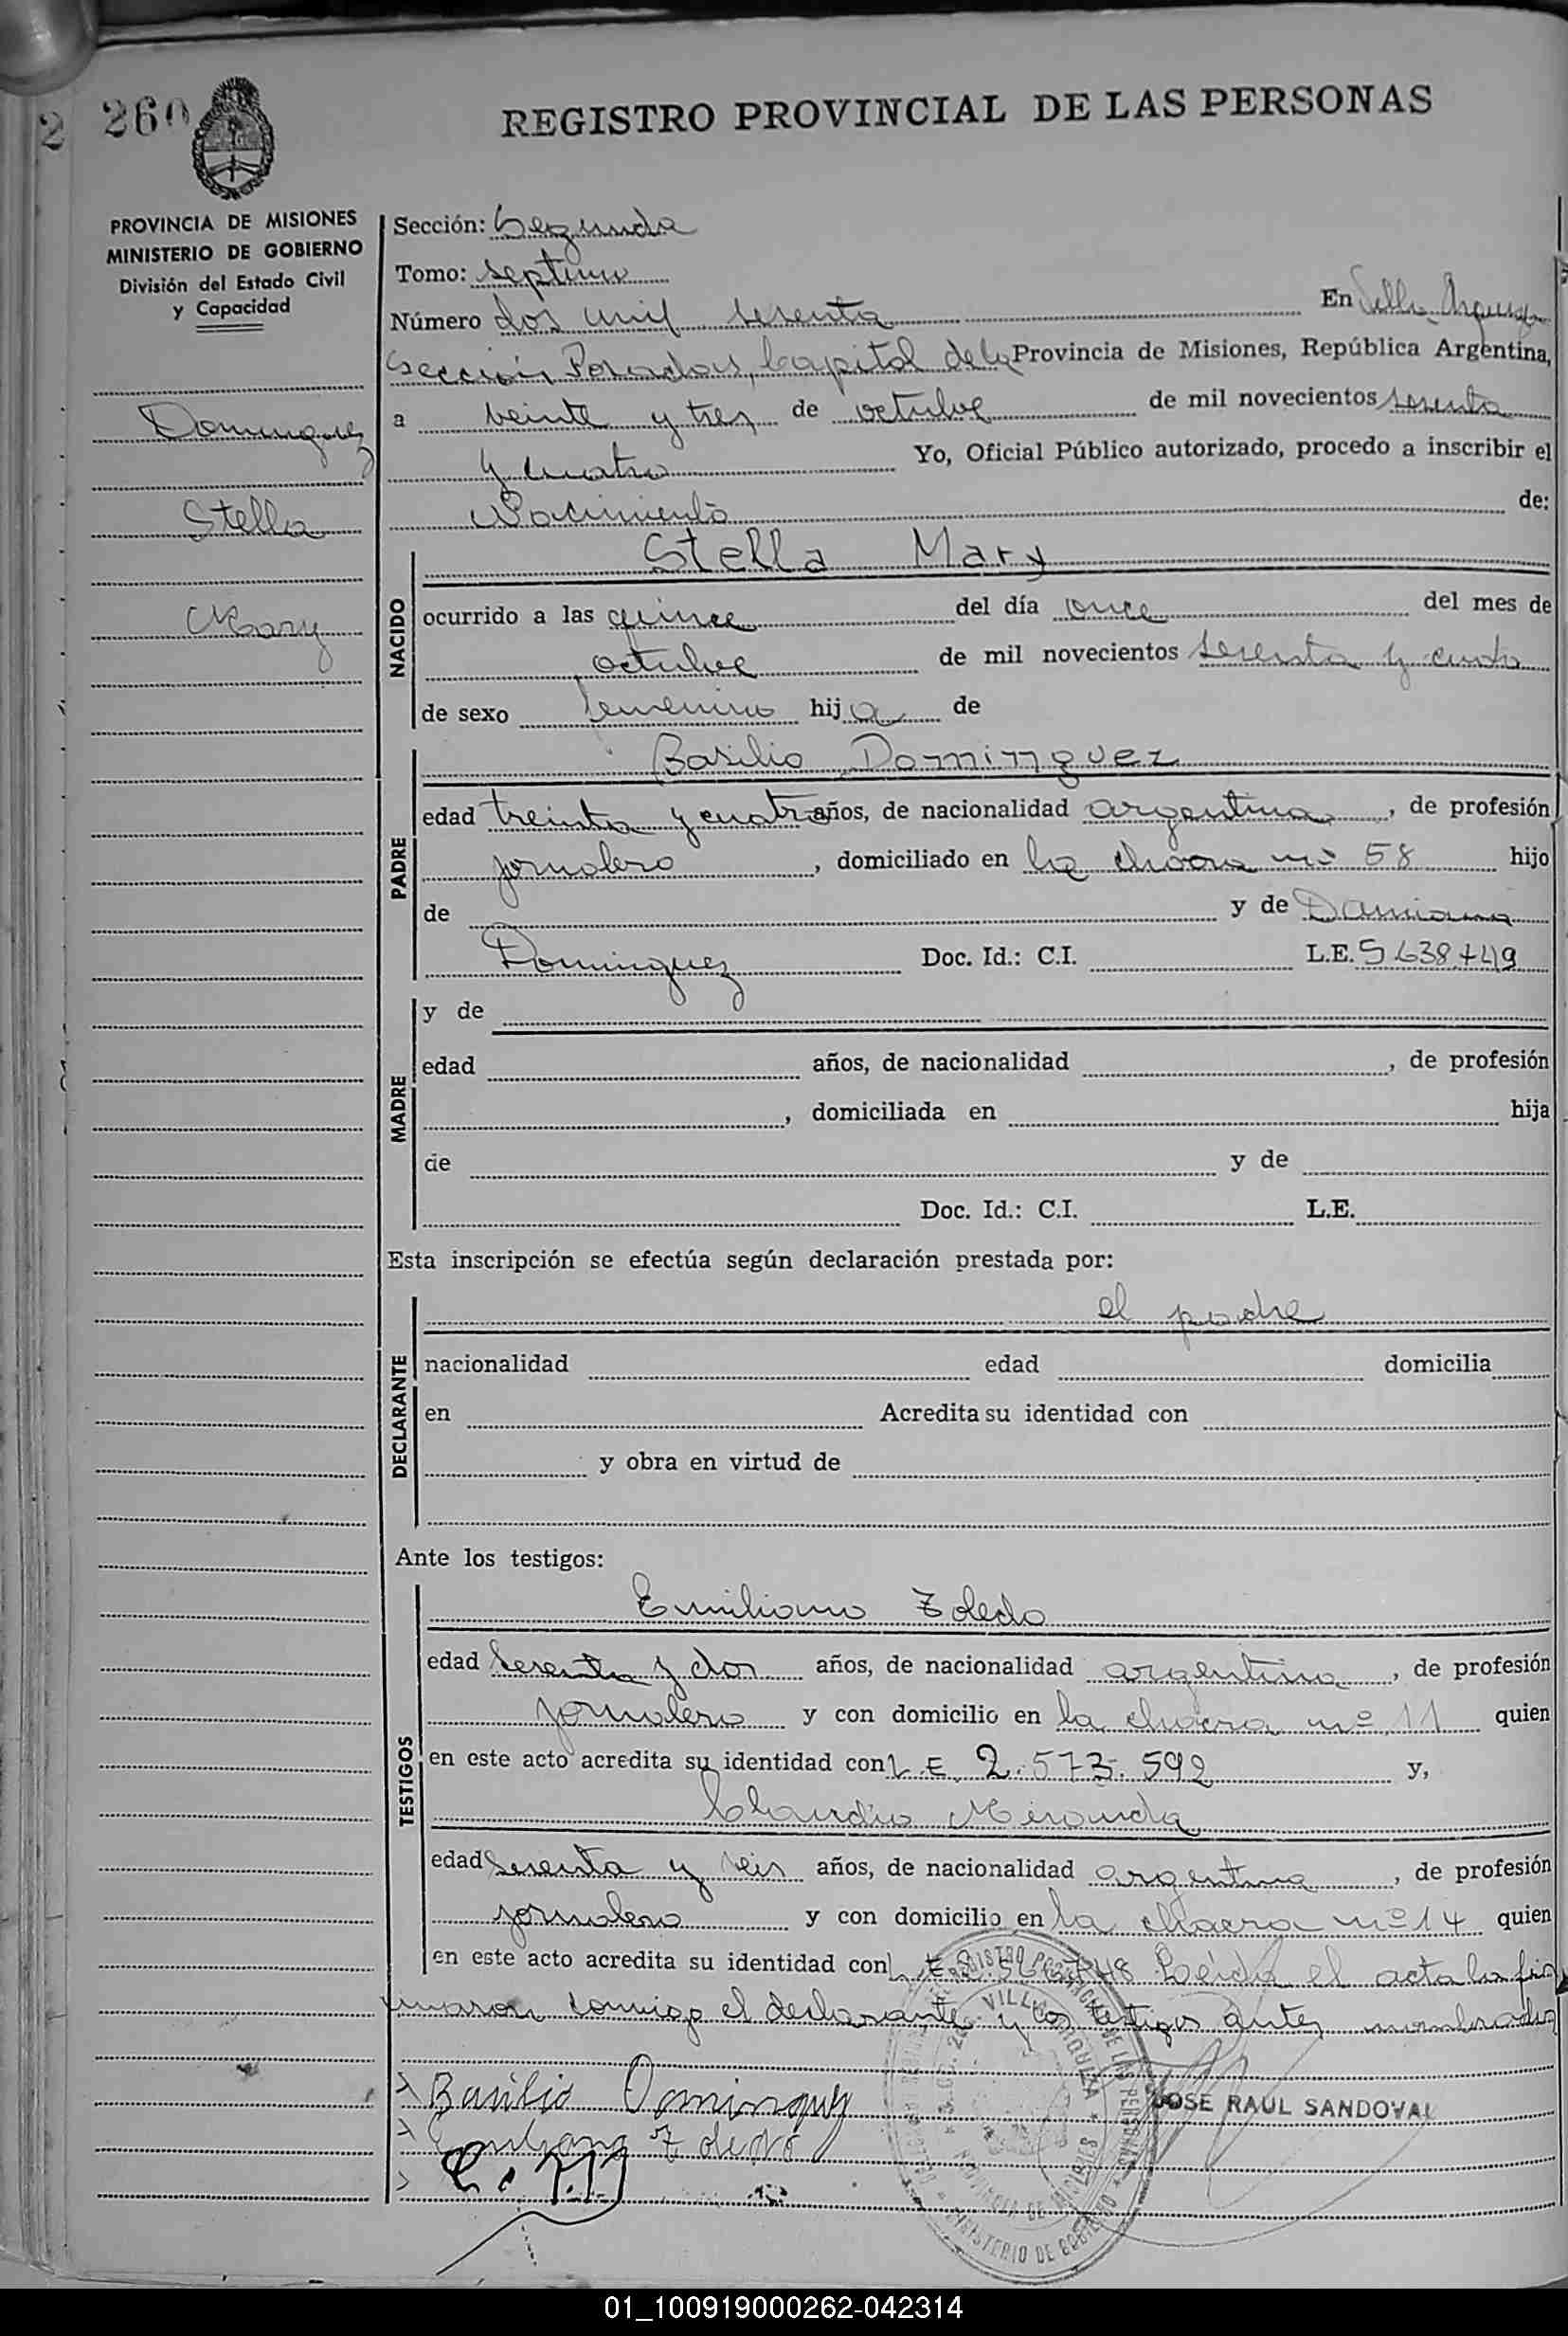 2 260
REGISTRO PROVINCIAL DE LAS PERSONAS
PROVINCIA DE MISIONES
MINISTERIO DE GOBIERNO
División del Estado Civil
y Capacidad
Dominguez
Stella
Mary
Sección: Segunda
Tomo: septimo
Número dos mil sesenta En Villa Urquiza
sección Posadas, Capital de la Provincia de Misiones, República Argentina,
a veinte y tres de octubre de mil novecientos sesenta
y cuatro Yo, Oficial Público autorizado, procedo a inscribir el
Nacimiento de:
NACIDO
Stella Mary
ocurrido a las quince del día once del mes de
octubre de mil novecientos sesenta y cuatro
de sexo femenino hija de
PADRE
Basilio Dominguez
edad treinta y cuatro años, de nacionalidad argentina, de profesión
jornalero, domiciliado en la chacra nº 58 hijo
de y de Damiana
Dominguez Doc. Id.: C.I. L.E.
MADRE
y de
edad años, de nacionalidad , de profesión
, domiciliada en hija
de y de
Doc. Id.: C.I. L.E.
Esta inscripción se efectúa según declaración prestada por:
DECLARANTE
el padre
nacionalidad edad domicilia
en Acredita su identidad con
y obra en virtud de
Ante los testigos:
TESTIGOS
Emiliano Toledo
edad sesenta y dos años, de nacionalidad argentina, de profesión
jornalero y con domicilio en la chacra nº 11 quien
en este acto acredita su identidad con L.E. 2.573.592 y,
Claudio Miranda
edad sesenta y seis años, de nacionalidad argentina, de profesión
jornalero y con domicilio en la chacra nº 14 quien
en este acto acredita su identidad con L.E. Leída el acta la fir
maron conmigo el declarante y los testigos antes nombrados
Basilio Dominguez
JOSE RAUL SANDOVAL
Emiliano Toledo
C. M
REGISTRO PROVINCIAL DE LAS PERSONAS
VILLA URQUIZA
PROVINCIA DE MISIONES
MINISTERIO DE GOBIERNO
01_100919000262-042314